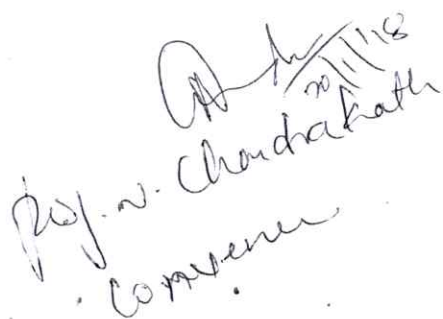 20/1/18
Prof. N. Chandrakath
Convener